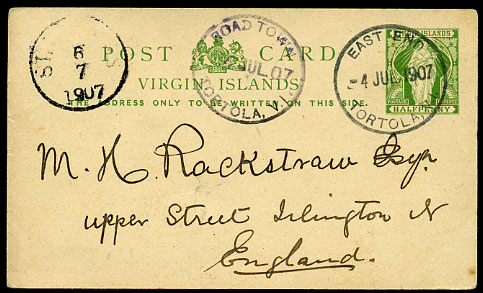 POST CARD
VIRGIN ISLANDS
THE ADDRESS ONLY TO BE WRITTEN ON THIS SIDE.
6
7
1907
ROAD TOWN
JUL 07
TORTOLA, V.I.
EAST END
4 JUL 1907
TORTOLA
ISLANDS
HALFPENNY
M. H. Rackstraw Esqr
upper Street Islington N
England.